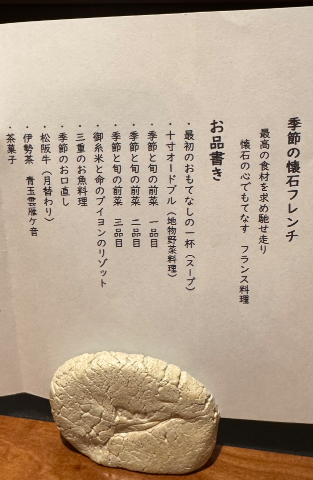 季節の懐石フレンチ
最高の食材を求め馳せ走り
懐石の心でもてなす フランス料理
お品書き
・最初のおもてなしの一杯（スープ）
・十寸オードブル（地物野菜料理）
・季節と旬の前菜 一品目
・季節と旬の前菜 二品目
・季節と旬の前菜 三品目
・御糸米と命のブイヨンのリゾット
・三重のお魚料理
・季節のお口直し
・松阪牛（月替わり）
・伊勢茶 青玉雲雁ケ音
・茶菓子